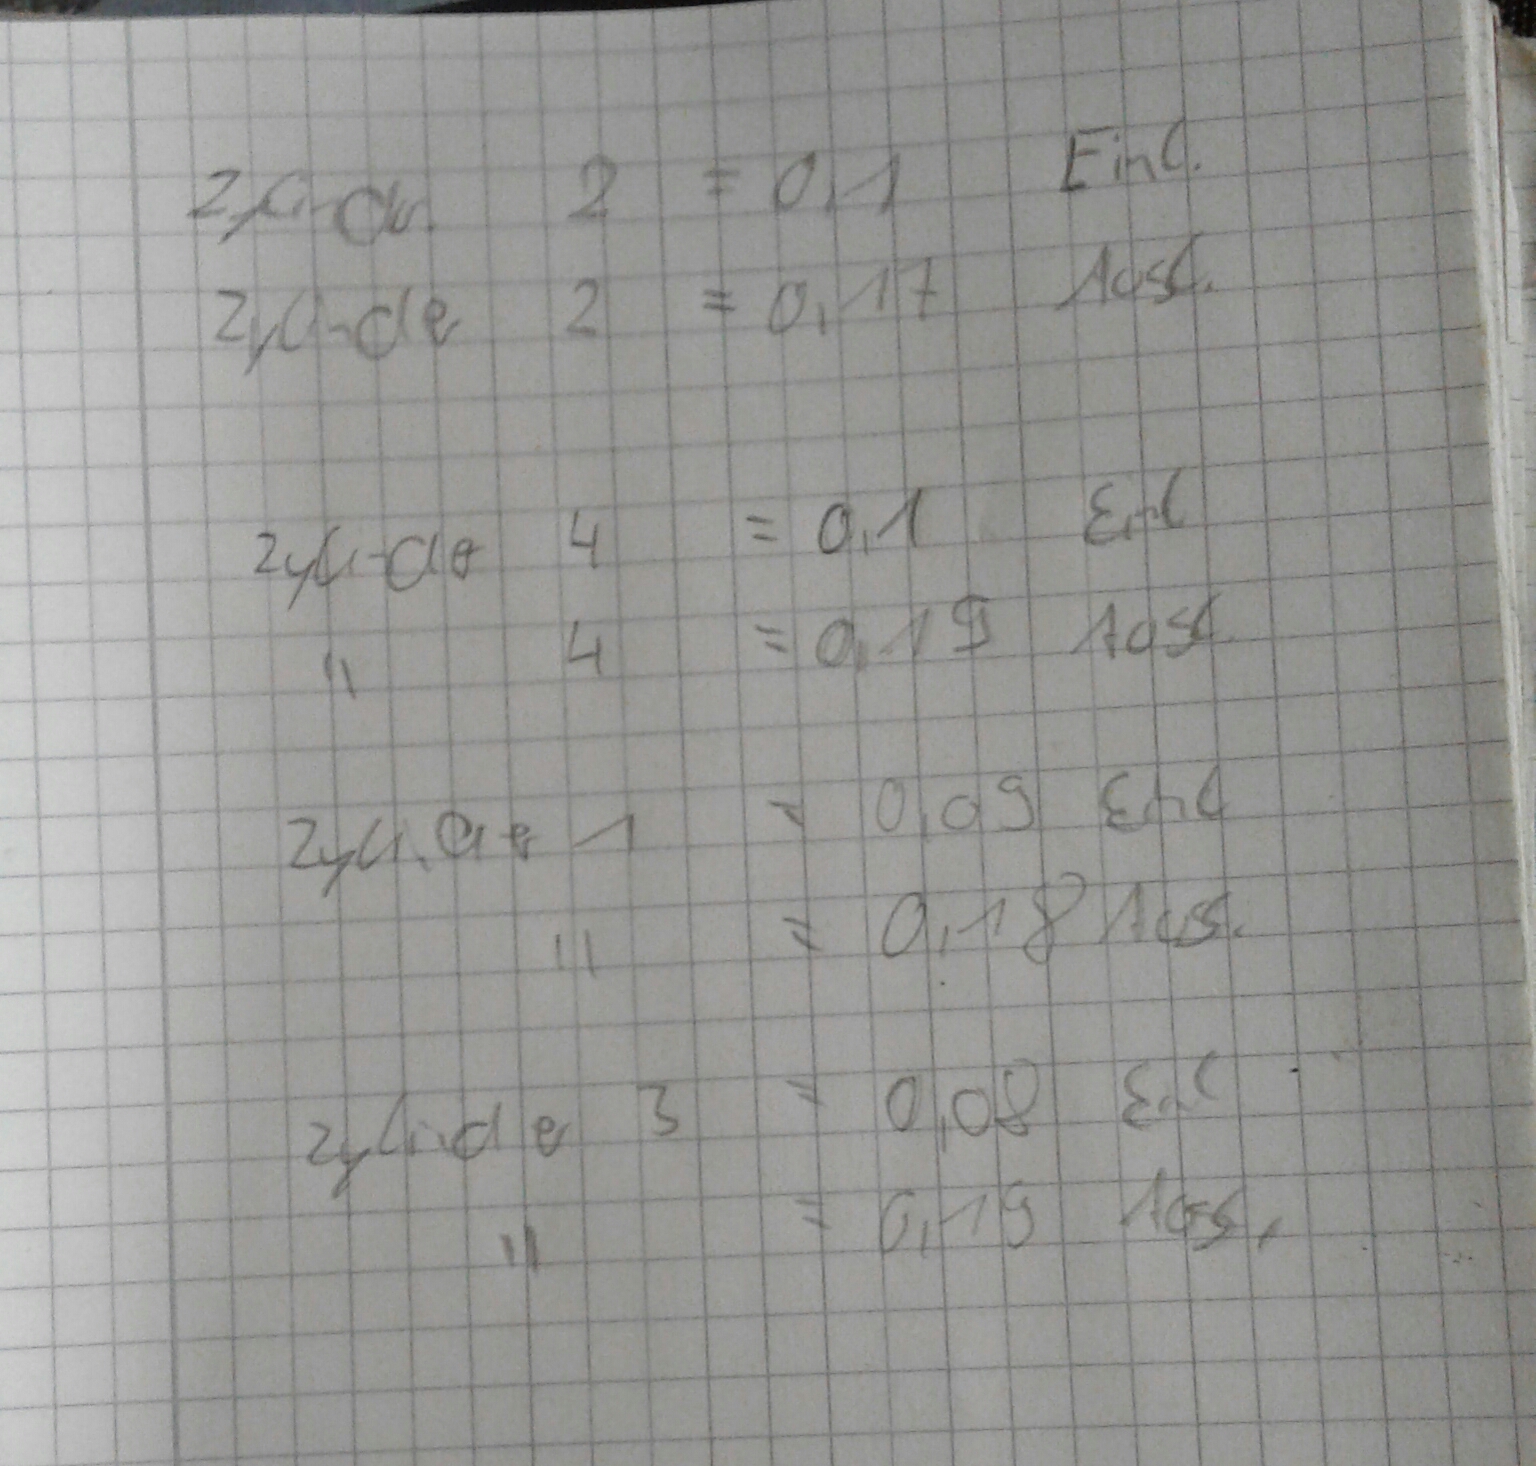 Zylinder 2 = 0,1 Einl.
Zylinder 2 = 0,17 Ausl.
Zylinder 4 = 0,1 Einl
" 4 = 0,19 Ausl
Zylinder 1 = 0,09 Einl
" = 0,18 Ausl.
Zylinder 3 = 0,08 Einl
" = 0,19 Ausl.